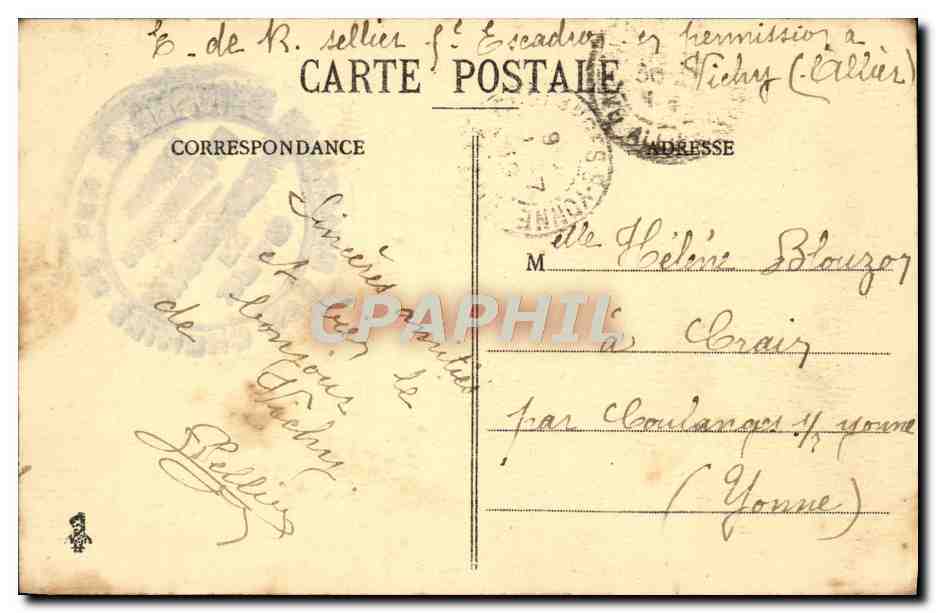 E. de R. sellier f.f. Escadron en permission à
Vichy (Allier)
CARTE POSTALE
CORRESPONDANCE
ADRESSE
Sincères amitiés
et bien le
bonjour
de Vichy
Sellier
M elle Hélène Blouzon
à Crain
par Coulanges s/ yonne
(Yonne)
YONNE
CPAPHIL